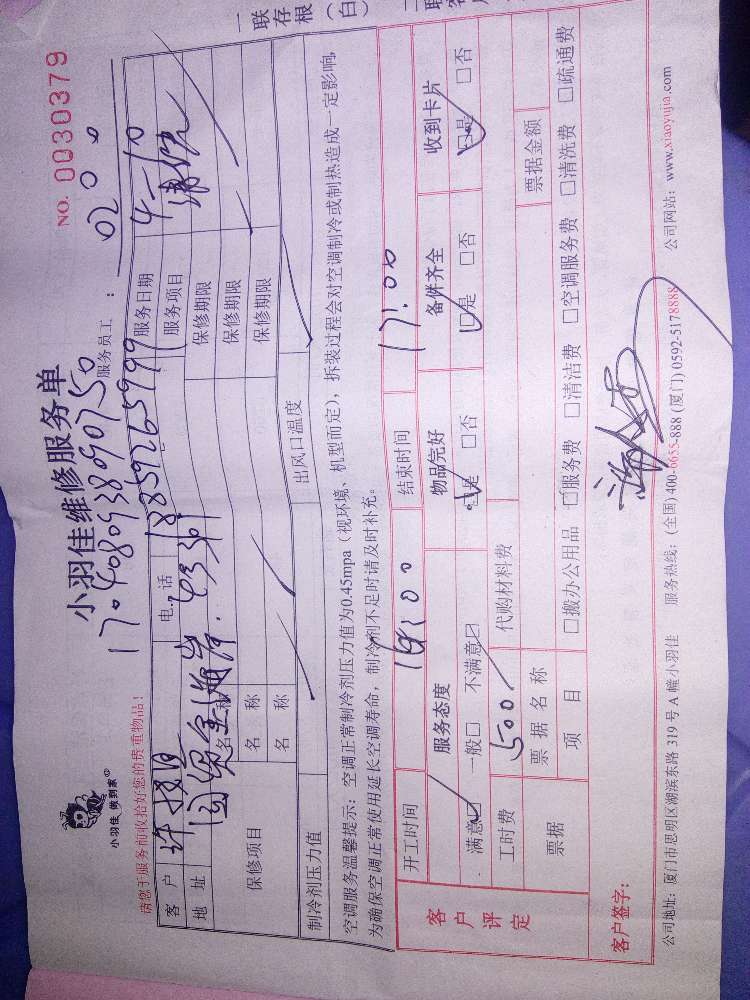 一联存根（白）
小羽佳 做到家
小羽佳维修服务单
NO. 0030379
1704080938090750
请您于服务前收拾好您的贵重物品！
服务员工：0200
客户 电话 18859265999 服务日期 4-10
地址 国贸金海岸 服务项目 清洗
保修项目 名称 保修期限
名称 保修期限
名称 保修期限
制冷剂压力值 出风口温度
空调服务温馨提示：空调正常制冷剂压力值为0.45mpa（视环境、机型而定），拆装过程会对空调制冷或制热造成一定影响，
为确保空调正常使用延长空调寿命，制冷剂不足时请及时补充。
客户评定
开工时间 结束时间 17:00
服务态度 物品完好 备件齐全 收到卡片
满意□ 一般□ 不满意□ □是 □否 □是 □否 □是 □否
工时费 500 代购材料费
票据 票据名称 票据金额
项目 □搬办公用品 □服务费 □清洁费 □空调服务费 □清洗费 □疏通费
客户签字：
公司地址：厦门市思明区湖滨东路 319 号 A 幢小羽佳 服务热线：(全国) 400-0655-888 (厦门) 0592-5178888 公司网站：www.xiaoyujia.com